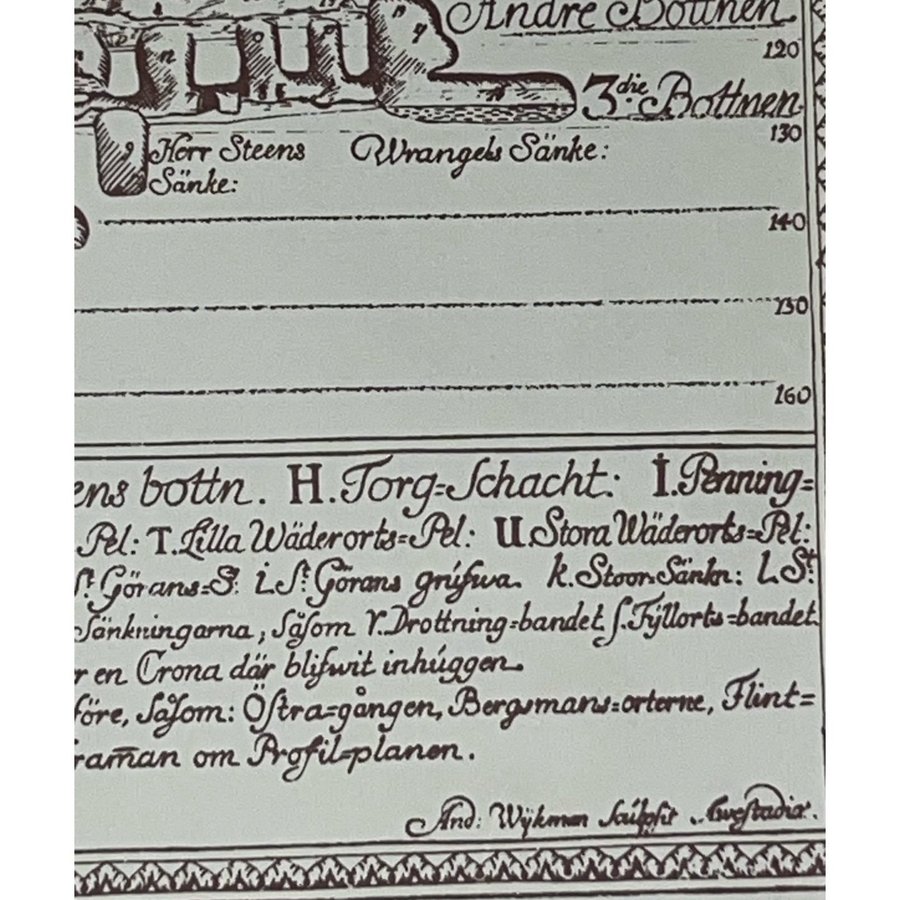 Andre Bottnen.
120
3die Bottnen.
130
Herr Steens
Sänke:
Wrangels Sänke:
140
150
160
ens bottn. H. Torg=Schacht: I. Penning=
Pel: T. Lilla Wäderorts=Pel: U. Stora Wäderorts=Pel:
St. Görans=S: i. St. Görans grufwa. k. Stoor=Sänkn: l. St:
Sänkningarna, såsom r. Drottning=bandet ſ. Fÿllorts=bandet
r en Crona där blifwit inhúggen.
före, såsom: Östra=gången, Bergsmans=orterne, Flint=
ram̄an om Profil=planen.
And: Wÿkman Sculpsit Awestadiæ.